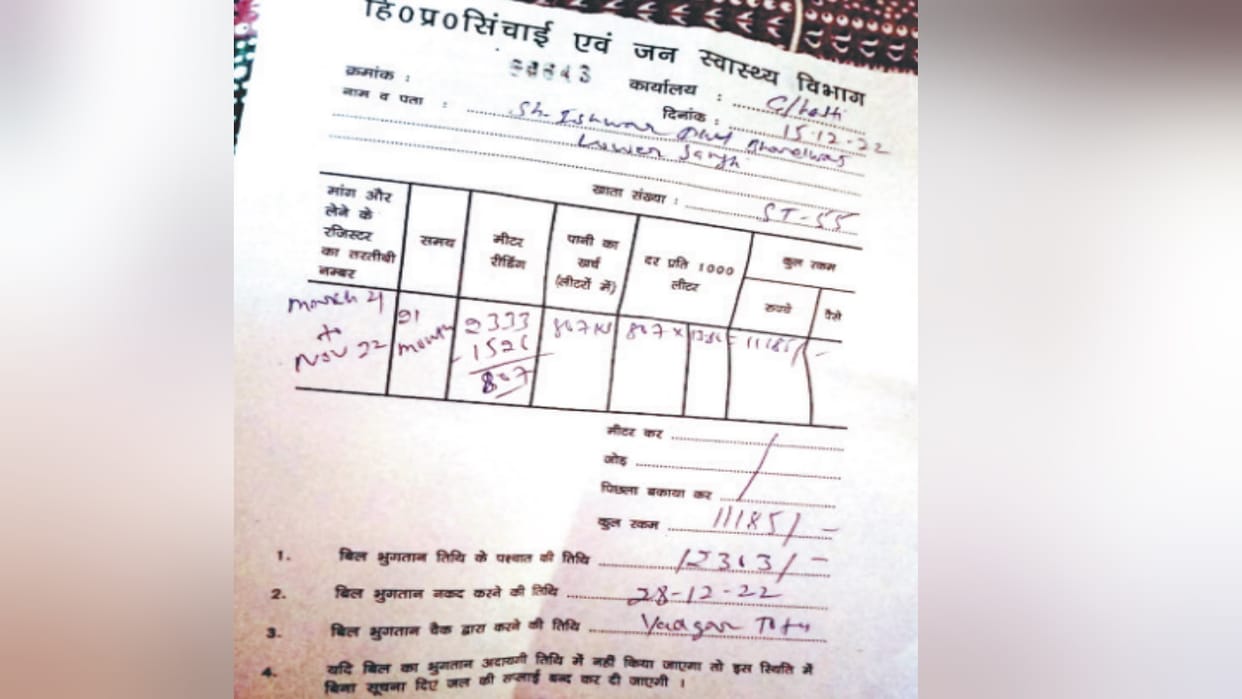 हि0प्र0सिंचाई एवं जन स्वास्थ्य विभाग
क्रमांक : कार्यालय :
नाम व पता : Sh. Ishwar दिनांक : 15-12-22
Lower
खाता संख्या : ST-55
मांग और लेने के रजिस्टर का तरतीबी नम्बर
समय
मीटर रीडिंग
पानी का खर्च (लीटरों में)
दर प्रति 1000 लीटर
कुल रकम
रुपये
पैसे
March 21 to Nov 22
21 month
2333
1526
807
807
807 ×
11185/-
मीटर कर
जोड़
पिछला बकाया कर
कुल रकम 11185/-
1. बिल भुगतान तिथि के पश्चात की तिथि
2. बिल भुगतान नकद करने की तिथि 28-12-22
3. बिल भुगतान चैक द्वारा करने की तिथि
4. यदि बिल का भुगतान अदायगी तिथि में नहीं किया जाएगा तो इस स्थिति में
बिना सूचना दिए जल की सप्लाई बन्द कर दी जाएगी ।